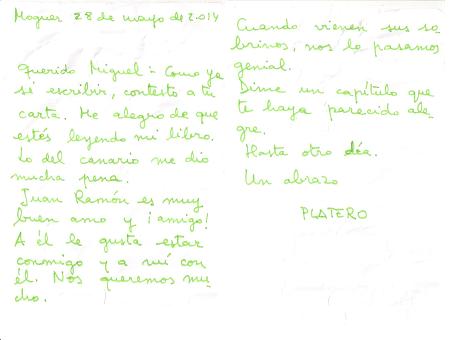 Moguer 28 de mayo de 2.014
Querido Miguel: Como ya
sé escribir, contesto a tu
carta. Me alegro de que
estés leyendo mi libro.
Lo del canario me dio
mucha pena.
Juan Ramón es muy
buen amo y ¡amigo!
A él le gusta estar
conmigo y a mí con
él. Nos queremos mu-
cho.
Cuando vienen sus so-
brinos, nos lo pasamos
genial.
Dime un capítulo que
te haya parecido ale-
gre.
Hasta otro día.
Un abrazo
PLATERO